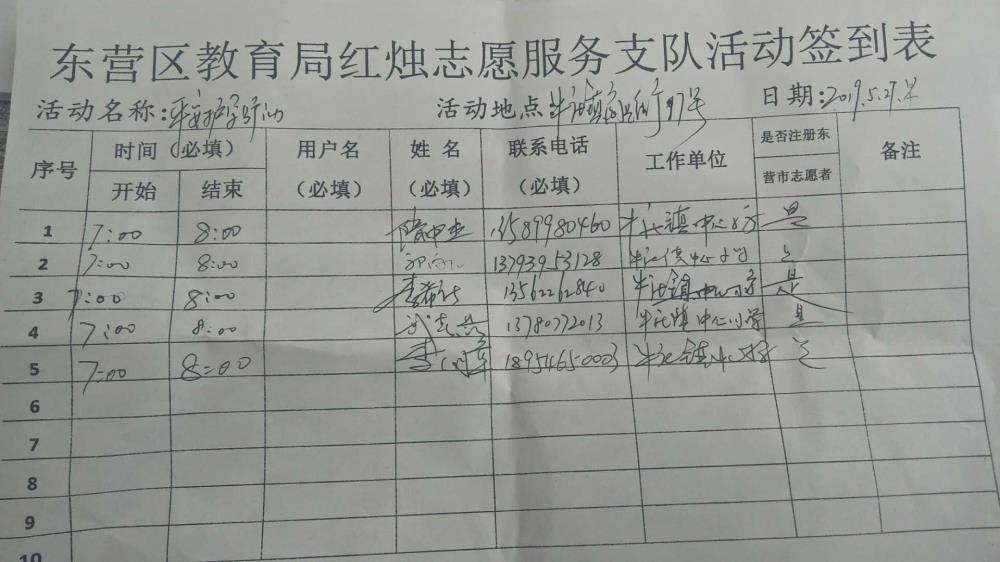 东营区教育局红烛志愿服务支队活动签到表
活动名称:平安护学行动 活动地点:牛庄镇 97号 日期:2019.5.27.早
序号 时间(必填) 用户名(必填) 姓名(必填) 联系电话(必填) 工作单位 是否注册东营市志愿者 备注
开始 结束
1 7:00 8:00 13589980460 牛庄镇中心小学 是
2 7:00 8:00 13793953128 牛庄镇中心小学 是
3 7:00 8:00 李希 13562262840 牛庄镇中心小学 是
4 7:00 8:00 13780772013 牛庄镇中心小学 是
5 7:00 8:00 李 18954650003 牛庄镇中心小学 是
6
7
8
9
10